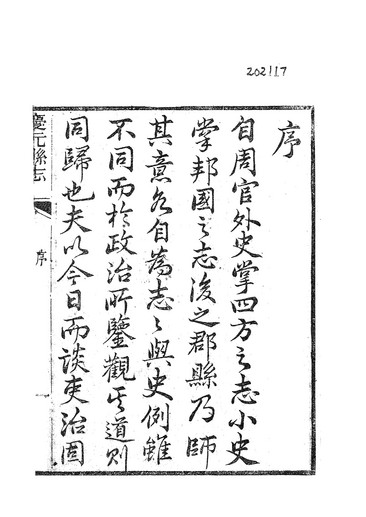 202117
序
自周官外史掌四方之志小史
掌邦國之志後之郡縣乃師
其意各自為志之與史例雖
不同而於政治所鑒觀其道則
同歸也夫以今日而談吏治固
慶元縣志
序